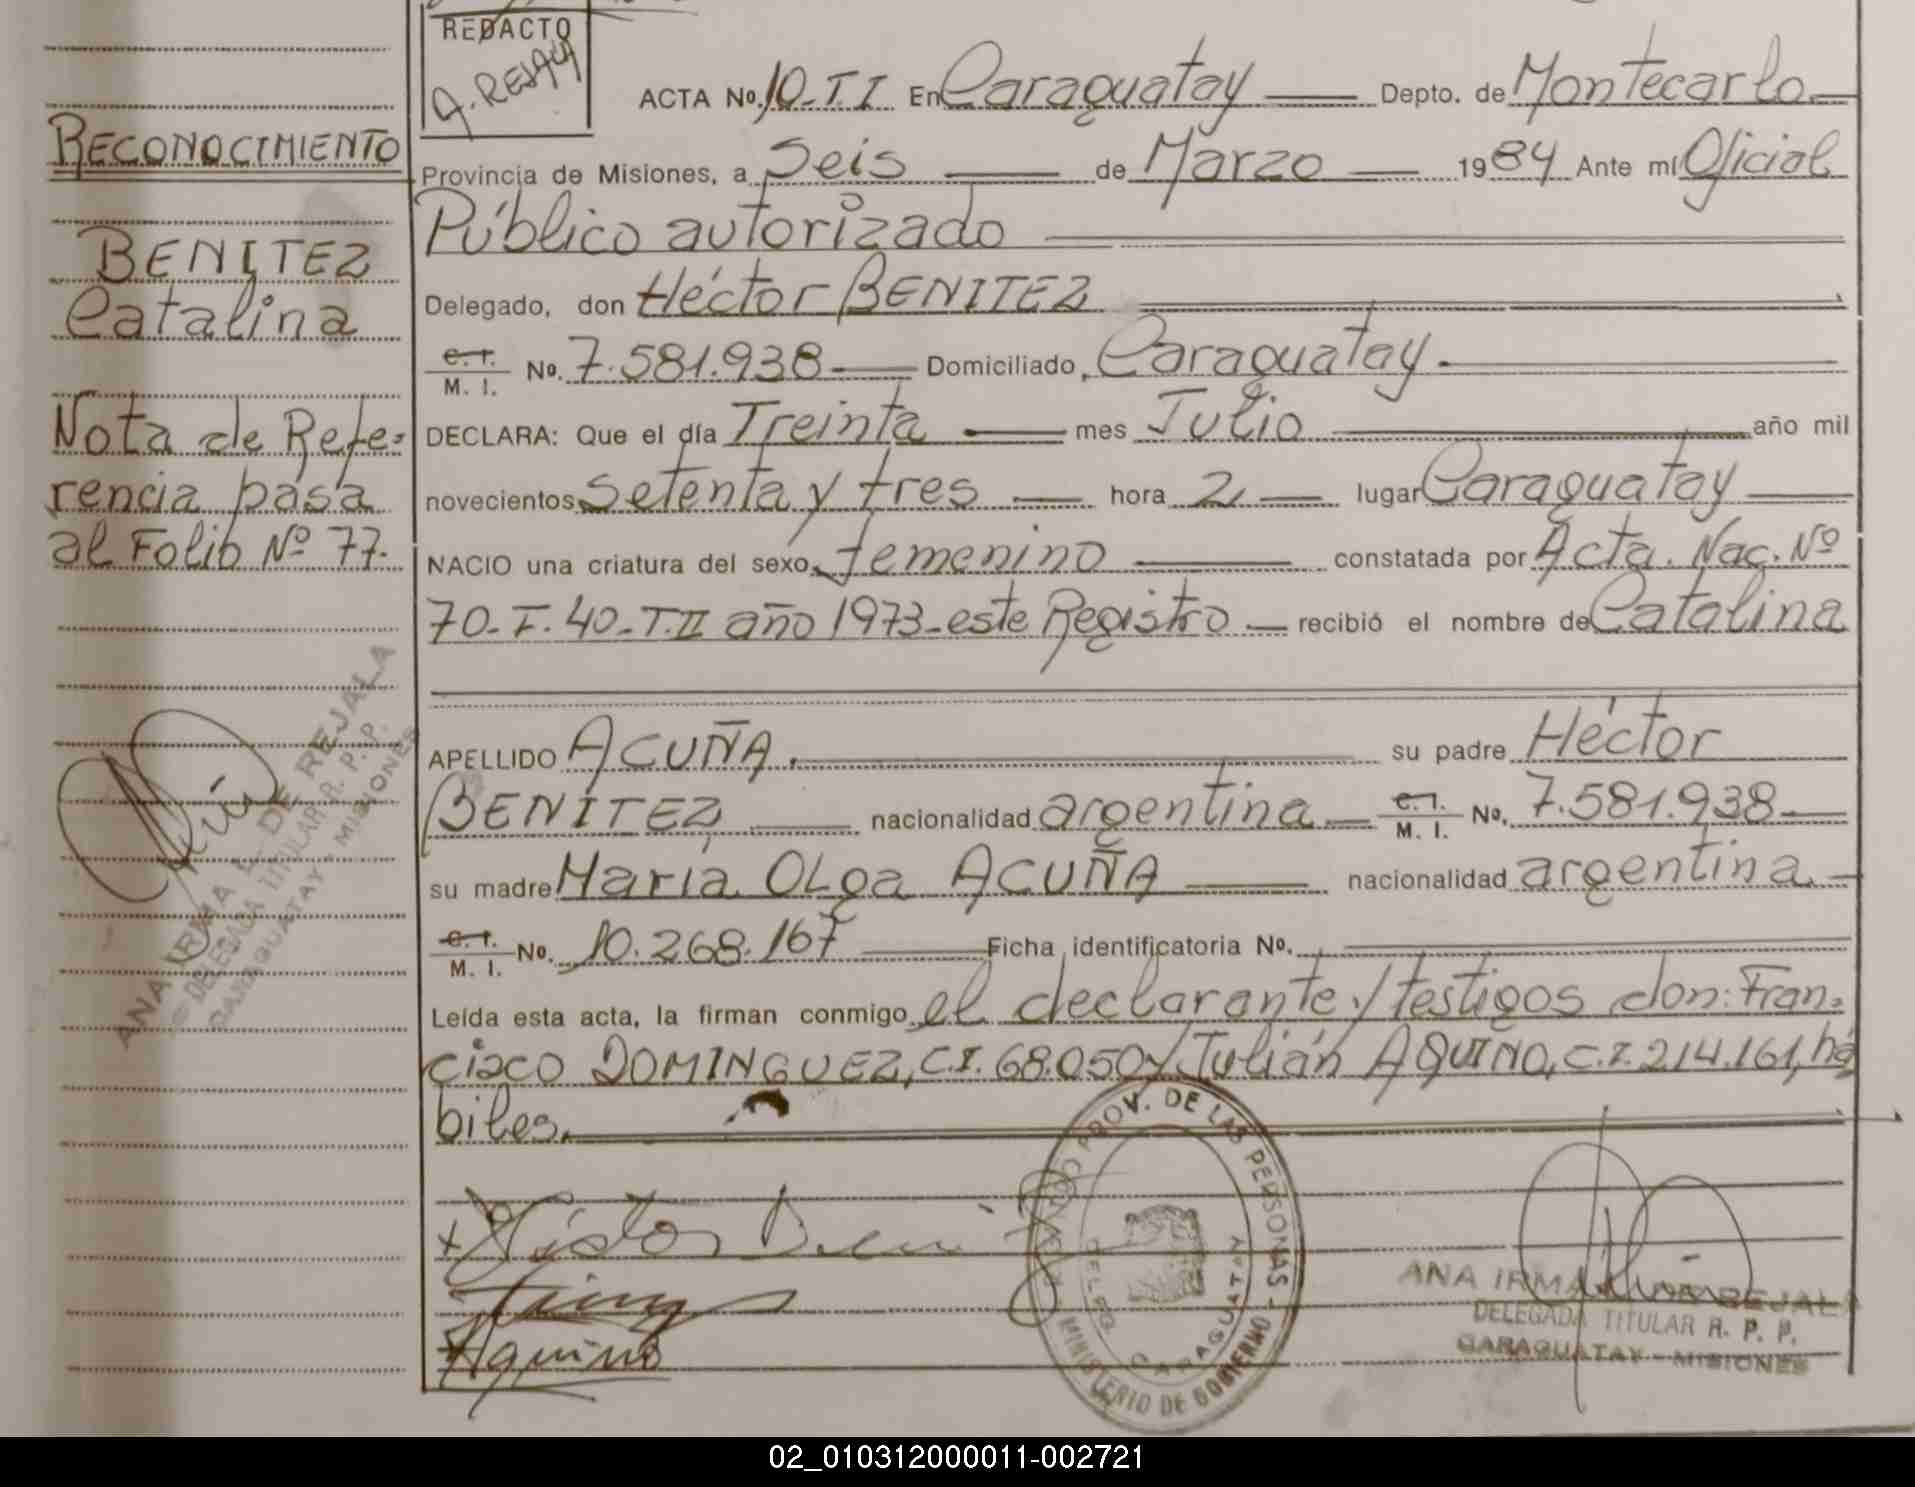 REDACTO
A. REJALA
ACTA No. 10-T.I En Caraguatay Depto. de Montecarlo
Provincia de Misiones, a Seis de Marzo 1984 Ante mí Oficial
Público autorizado
Delegado, don Héctor BENITEZ
C. I. M. I. No. 7.581.938 Domiciliado, Caraguatay.
DECLARA: Que el día Treinta mes Julio año mil
novecientos Setenta y tres hora 2 lugar Caraguatay
NACIO una criatura del sexo femenino constatada por Acta. Nac. Nº
70-F.40-T.II año 1973-este Registro recibió el nombre de Catalina
APELLIDO ACUÑA. su padre Héctor
BENITEZ nacionalidad argentina C. I. M. I. No. 7.581.938
su madre María OLga ACUÑA nacionalidad argentina
C. I. M. I. No. 10.268.167 Ficha identificatoria No.
Leída esta acta, la firman conmigo el declarante y testigos don: Fran=
cisco DOMINGUEZ, C.I. 68.050 y Julián AQUINO, C.I. 214.161, há
biles.
RECONOCIMIENTO
BENITEZ
Catalina
Nota de Refe=
rencia pasa
al Folio Nº 77.
ANA IRMA L. DE REJALA
DELEGADA TITULAR R. P. P.
CARAGUATAY - MISIONES
Aquino
PROV. DE LAS PERSONAS - MINISTERIO DE GOBIERNO
DELEG. CARAGUATAY
ANA IRMA REJALA
DELEGADA TITULAR R. P. P.
CARAGUATAY - MISIONES
02_010312000011-002721